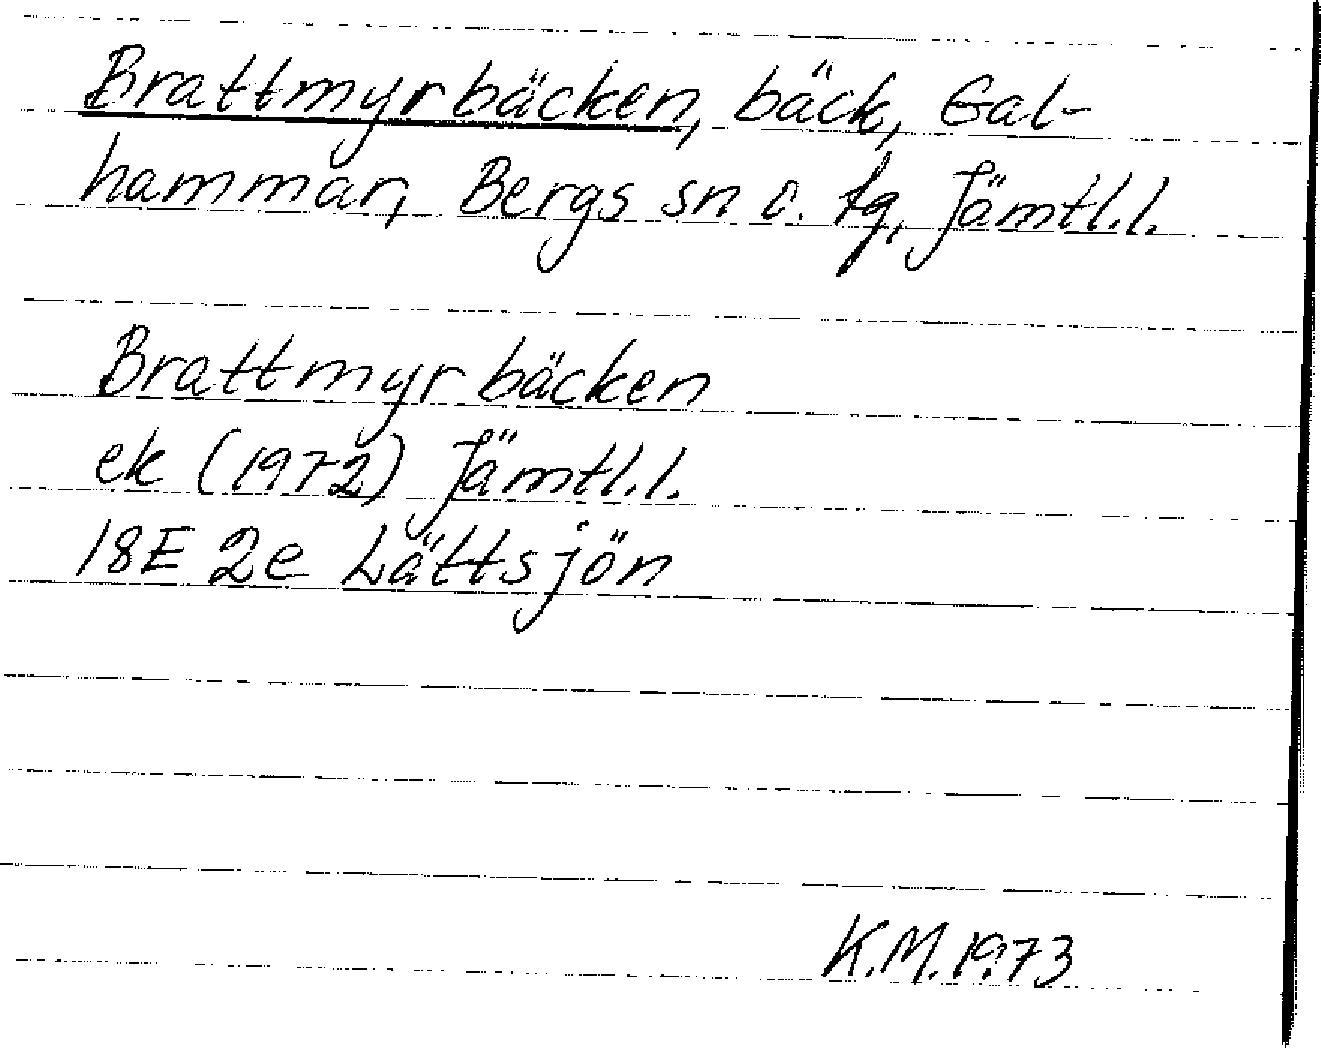 Brattmyrbäcken, bäck, Gal-
hammar, Bergs sn o. tg, Jämtl.l.
Brattmyrbäcken
ek (1972) Jämtl.l.
18E 2e Lättsjön
K.M. 1973